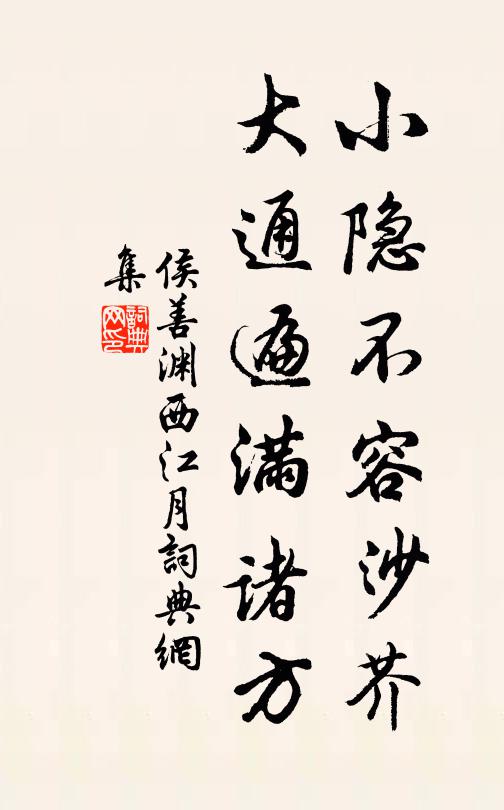 小隐不容沙芥
大通遍满诸方
侯善渊西江月詞典網
集
詞典網印